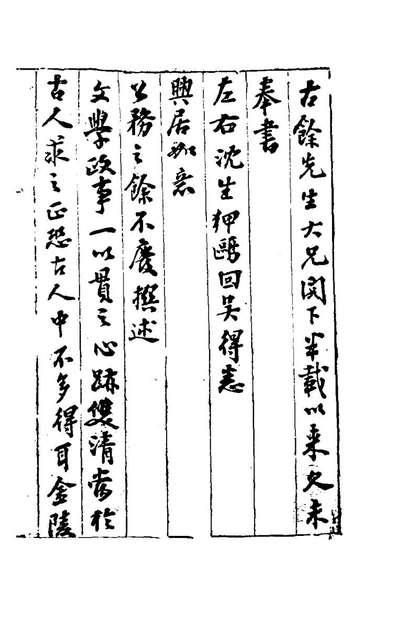 古餘先生大兄閣下半載以來久未
奉書
左右沈生狎鷗回吴得悉
興居如意
公務之餘不廢撰述
文學政事一以貫之心跡雙清當於
古人求之正恐古人中不多得耳金陵